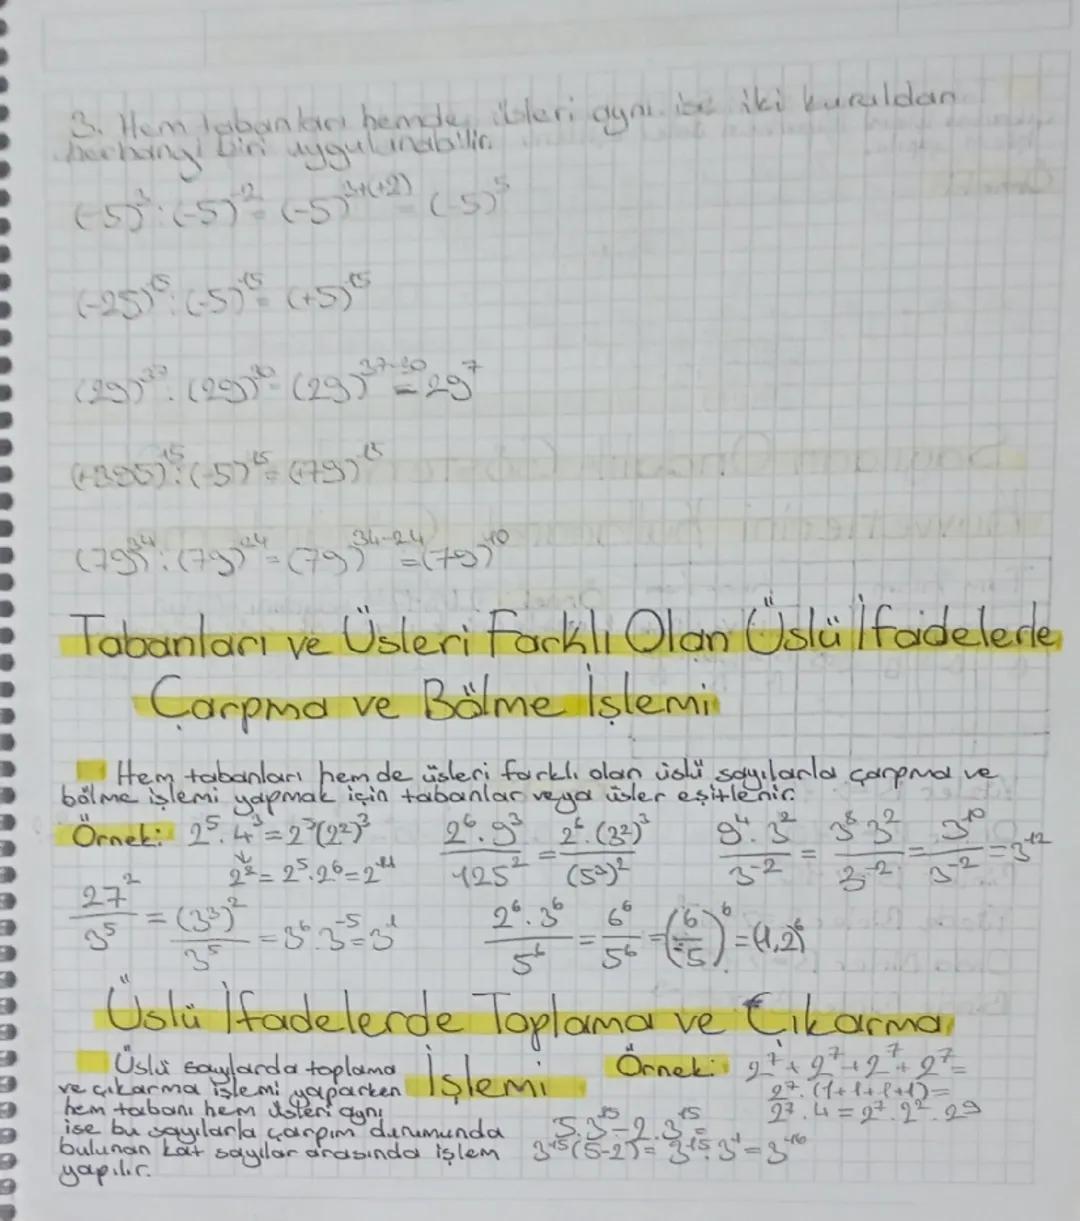 3. Hem tabanları hemde üsleri aynı ise iki kuraldan
herhangi biri uygulanabilir.
(-5)³:(-5)⁻²=(-5)³⁺⁽⁺²⁾=(-5)⁵
(-25)¹⁵:(-5)¹⁵=(+5)¹⁵
(29)³⁷:(29)³⁰=(29)³⁷⁻³⁰=29⁷
(-395)¹⁵:(-5)¹⁵=(+79)¹⁵
(79)³⁴:(79)²⁴=(79)³⁴⁻²⁴=(79)¹⁰
Tabanları ve Üsleri Farklı Olan Üslü İfadelerle
Çarpma ve Bölme İşlemi
Hem tabanları hem de üsleri farklı olan üslü sayılarla çarpma ve
bölme işlemi yapmak için tabanlar veya üsler eşitlenir.
Örnek: 2⁵.4³=2⁵(2²)³
2²=2⁵.2⁶=2¹¹
2⁶.9³/125²=2⁶.(3²)³/(5³)²
9⁴.3²/3⁻²=3⁸.3²/3⁻²=3¹⁰/3⁻²=3¹²
27²/3⁵=(3³)²/3⁵=3⁶.3⁻⁵=3¹
2⁶.3⁶/5⁶=6⁶/5⁶=(6/5)⁶=(1,2)⁶
Üslü İfadelerde Toplama ve Çıkarma
İşlemi
Üslü sayılarda toplama
ve çıkarma işlemi yaparken
hem tabanı hem üsleri aynı
ise bu sayılarla çarpım durumunda
bulunan kat sayılar arasında işlem
yapılır.
Örnek: 2⁷+2⁷+2⁷+2⁷=
2⁷.(1+1+1+1)=
2⁷.4=2⁷.2².2⁹
5.3¹⁵-2.3¹⁵=
3¹⁵(5-2)=3¹⁵.3¹=3¹⁶